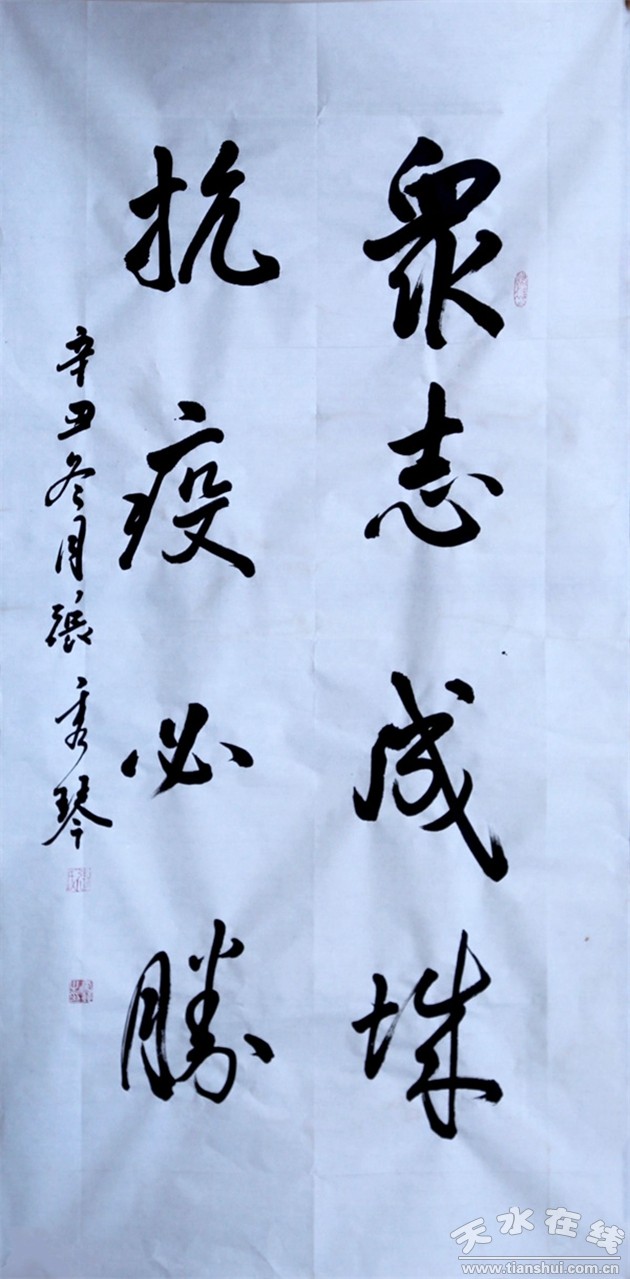 眾志成城
抗疫必勝
辛丑冬月張秀琴
天水在线
www.tianshui.com.cn